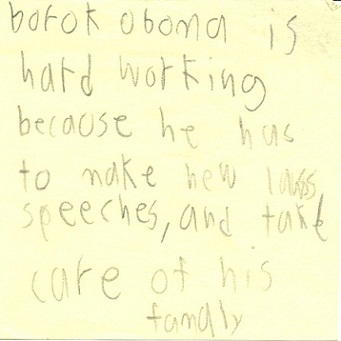 borok oboma is
hard working
because he has
to make new laws
speeches, and take
care of his
famdly